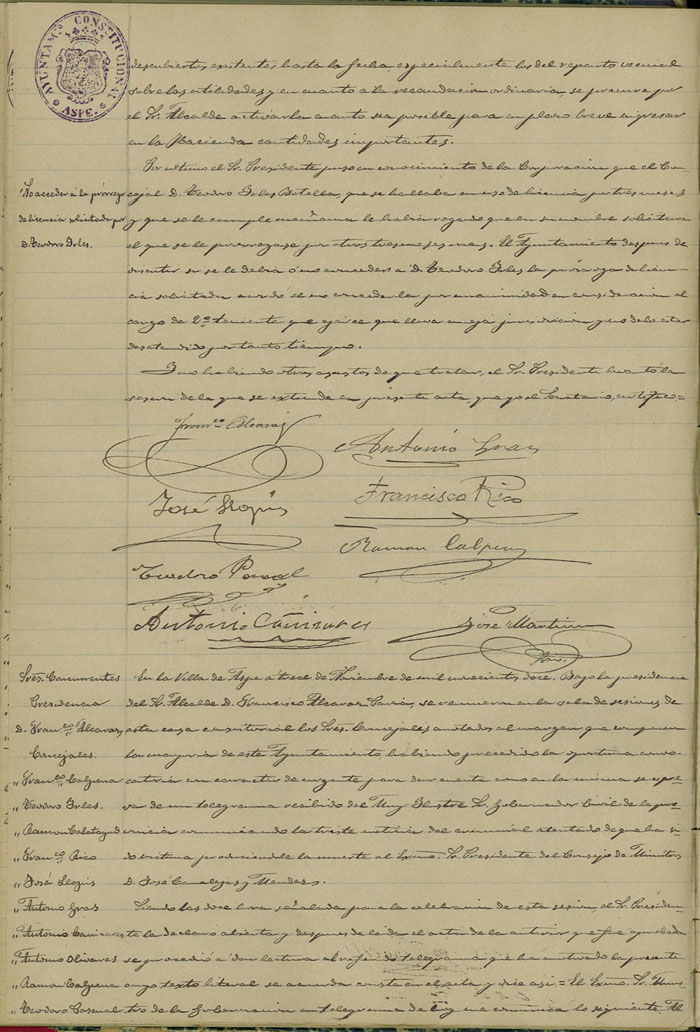 AYUNTAM.º CONSTITUCIONAL
ASPE.
descubiertos existentes hasta la fecha, especialmente los del reparto vecinal
sobre las utilidades y en cuanto a la recaudacion ordinaria, se procure por
el Sr. Alcalde activarla cuanto sea posible para en plazo breve ingresar
en la Hacienda cantidades importantes.
Por ultimo el Sr. Presidente puso en conocimiento de la Corporacion que el Con-
No acceder á la prórroga
cejal D. Teodoro Botella, que se hallaba en uso de licencia por tres meses
de licencia solicitada por
y que se le cumple mañana le habia rogado que en su nombre solicitara
D. Teodoro
el que se le prorrogase por otros tres meses mas. El Ayuntamiento despues de
discutir si se le debia ó no conceder á D. Teodoro la prórroga de licen-
cia solicitada acordó el no concederla por unanimidad en consideracion al
cargo de 2º teniente que ejerce que lleva aneja jurisdiccion y no debe estar
desatendido por tanto tiempo.
Y no habiendo otros asuntos de que tratar, el Sr. Presidente levantó la
sesion de la que se extiende la presente acta que yo el Secretario, certifico=
Franco Alcaraz
Antonio Gras
José
Francisco Rico
Ramon Calpena
Teodoro
Antonio Cañizares
José Martinez
Srio.
Sres. Concurrentes
En la Villa de Aspe a trece de Noviembre de mil novecientos doce. Bajo la presidencia
Presidencia
del Sr. Alcalde D. Francisco Alcaraz se reunieron en la sala de sesiones de
D. Franco Alcaraz
esta casa consistorial los Sres. Concejales anotados al margen que componen
Concejales.
la mayoria de este Ayuntamiento habiendo precedido la oportuna convo-
" Franco Calpena
catoria con caracter de urgente para dar cuenta como en la misma se expre-
" Teodoro
sa de un telegrama recibido del Muy Ilustre Sr. Gobernador Civil de la pro-
" Ramon Calatayud
vincia comunicando la triste noticia del criminal atentado de que ha si-
" Franco Rico
do victima produciendole la muerte al Exmo. Sr. Presidente del Consejo de Ministros
" José
D. José Canalejas y Mendez.
" Antonio Gras
Siendo las doce hora señalada para la celebracion de esta sesion, el Sr. Presiden-
" Antonio Cañizares
te la declaró abierta y despues de leida el acta de la anterior que fue aprobada
" Antonio Olivares
se procedió á dar lectura al referido telegrama que ha motivado la presente
" Ramon Calpena
cuyo texto literal se acuerda conste en el acta y dice asi = El Exmo. Sr. Minis
" Teodoro
tro de la Gobernacion en telegrama de hoy me comunica lo siguiente. Al